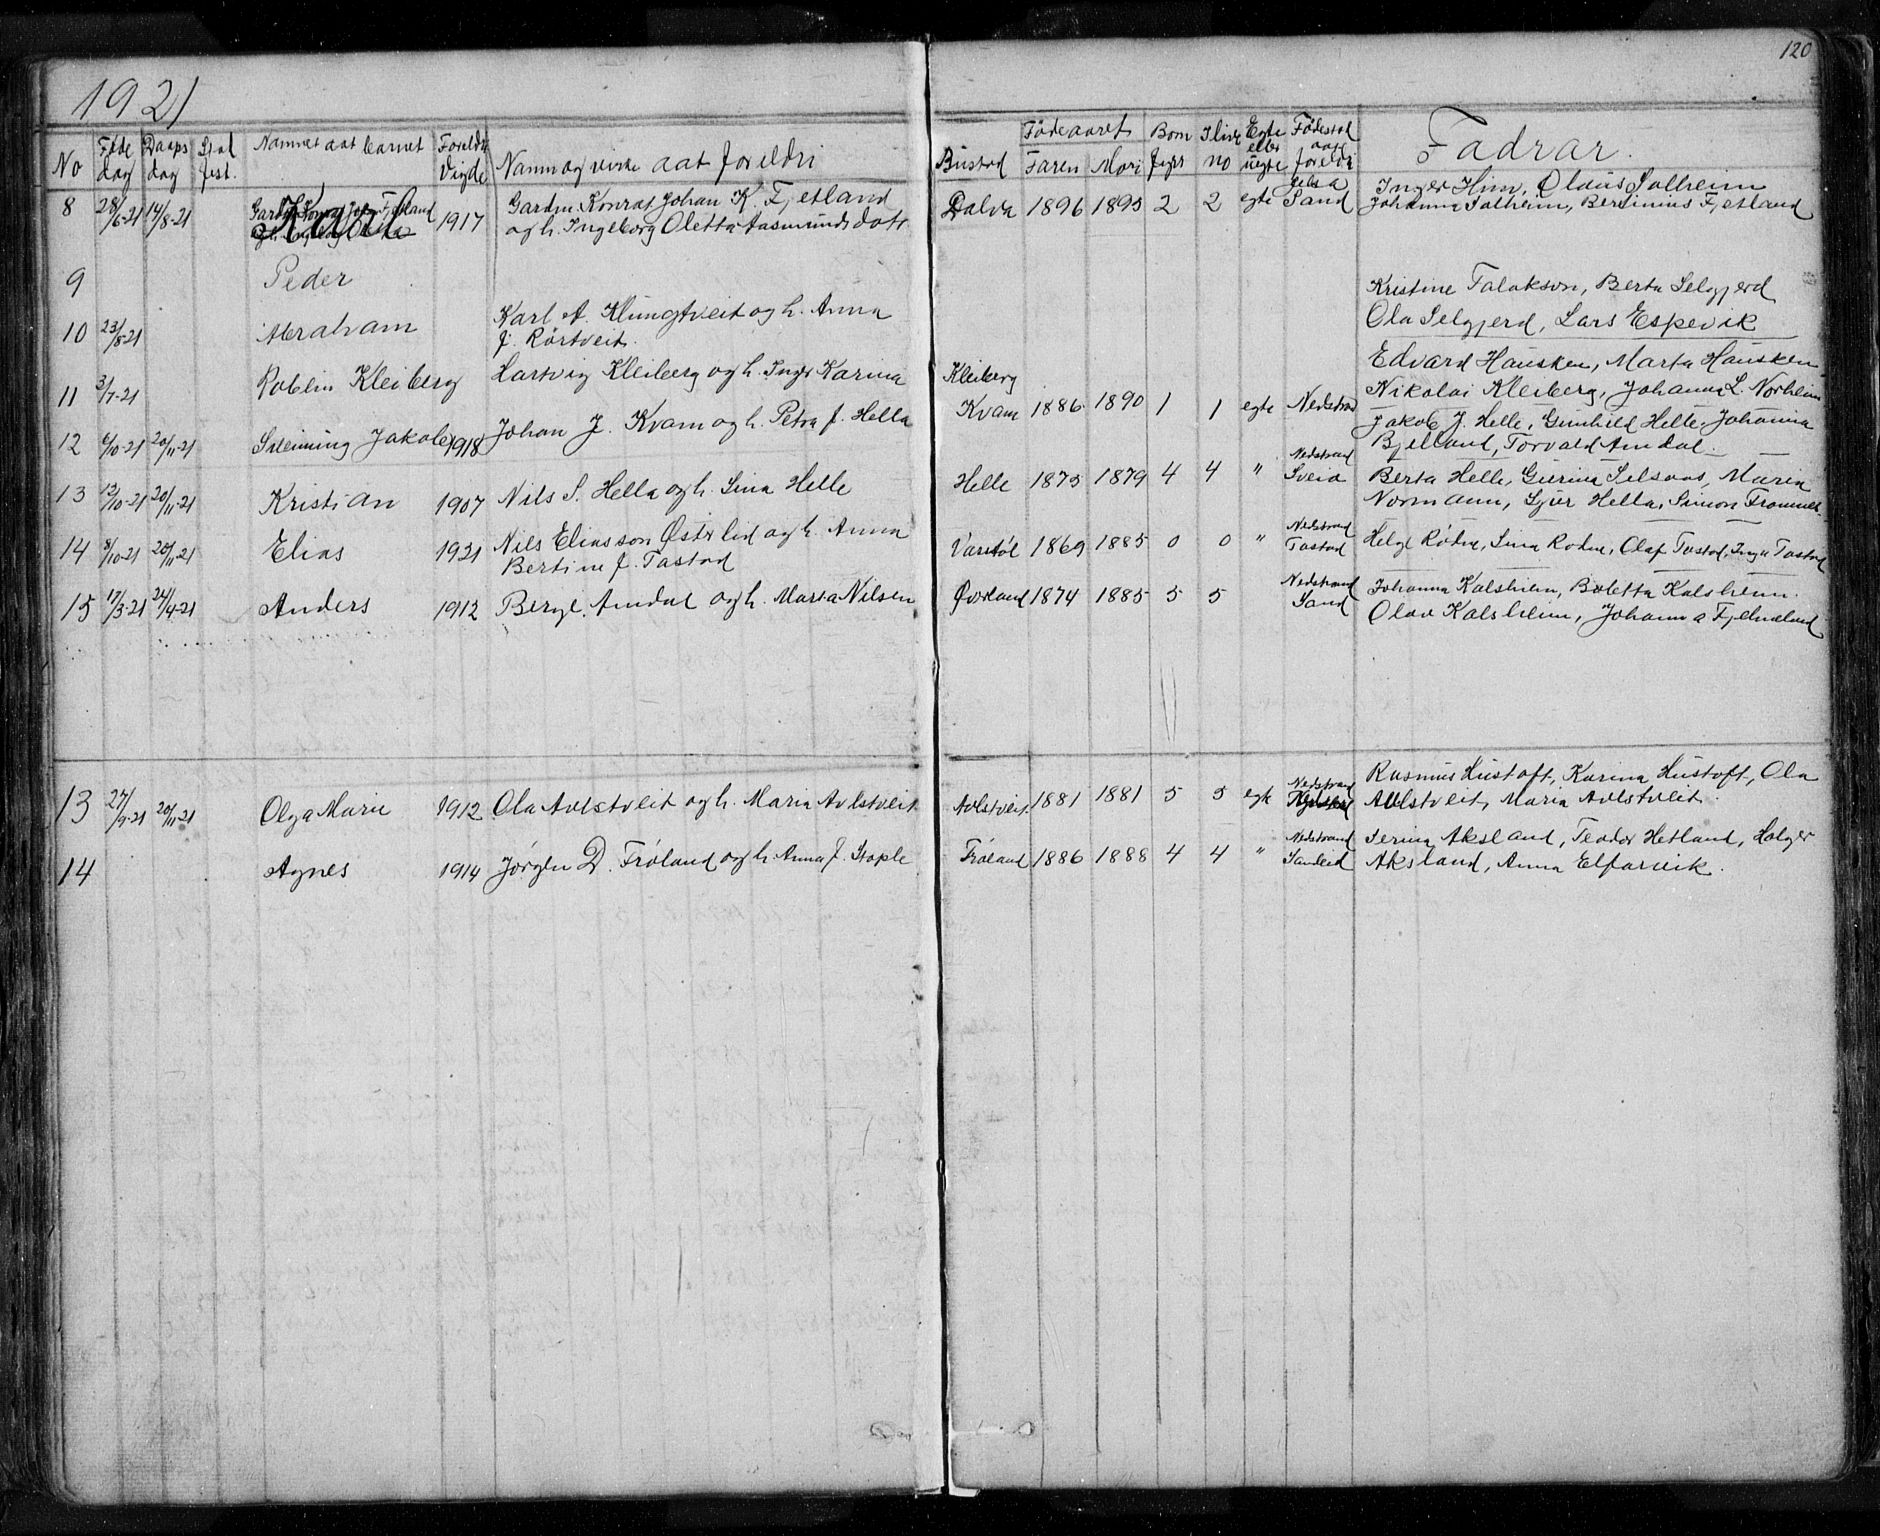 120
1921
No Føde dag Daaps dag Stad fest. Namnet aat barnet Foreldri Vigde Namn og virke aat foreldri
Bustad Fødeaaret Faren Mori Born fyrr I live no Egte eller uegte Fødestad aat foreldri Fadrar.
8 28/6-21 14/8-21 1917 Gardm. Konrat Johan K. Fjetland
og h. Ingeborg Oletta Aasmundsdott
Dalva 1896 1895 2 2 egte Jelsa Sand Inger Him, Olaus Solheim
Johanna Solheim, Bertinius Fjetland
9 Peder
Kristine Falakson, Berta Selgjerd
Ola Selgjerd, Lars Espevik
10 23/8-21 Abraham Karl A. Klungtveit og h. Anna
J. Rørtveit.
Edvard Hausken, Marta Hausken
11 3/7-21 Roblin Kleiberg Hartvig Kleiberg og h. Inger Karina
Kleiberg
Nikolai Kleiberg, Johanna L. Norheim
12 6/10-21 20/11-21 Sveinung Jakob 1918 Johan J. Kvam og h. Petra J. Helle
Kvam 1886 1890 1 1 egte Nedstrand Jakob J. Helle, Gunhild Helle, Johanna
Bjelland, Torvald Amdal.
13 12/10-21 20/11-21 Kristian 1907 Nils S. Helle og h. Sina Helle
Helle 1875 1879 4 4 " Nedstrand Sveio Berta Helle, Gurina Selsaas, Maria
Normann, Sjur Helle, Simon Frommes.
14 8/10-21 20/11-21 Elias 1921 Nils Eliasson Østrlid og h. Anna
Bertine J. Tastad
Varstøl 1869 1885 0 0 " Nedstrand Tastad Helge Røthe, Sina Rothe, Olaf Tastad, Inga Tastad
15 17/3-21 24/4-21 Anders 1912 Berge Amdal og h. Marta Nilsen
Øvrland 1874 1885 5 5 Nedstrand Sand Johanna Kalsheim, Boletta Kalsheim.
Olav Kalsheim, Johanna Fjelnaland
13 27/9-21 20/11-21 Olga Marie 1912 Ola Avlstveit og h. Maria Avlstveit
Avlstveit 1881 1881 5 5 egte Nedstrand Rasmus Hustoft, Karina Hustoft, Ola
Avlstveit, Maria Avlstveit.
14 Agnes 1914 Jørgen D. Frøland og h. Anna J. Stople
Frøland 1886 1888 4 4 " Nedstrand Sandeid Serina Aksland, Teodor Hetland, Holger
Aksland, Anna Elfarvik.